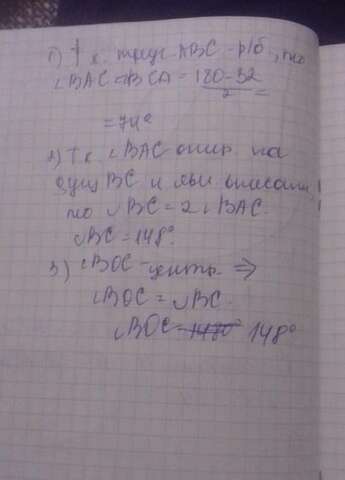 1) Т.к. треуг. ABC - р/б, то
∠BAC = ∠BCA = 180-32
2
= 74°
2) Т.к. ∠BAC опир. на
дугу BC и явл вписан
то ◡BC = 2∠BAC.
◡BC = 148°.
3) ∠BOC - центр. ⇒
∠BOC = ◡BC.
∠BOC = 148°